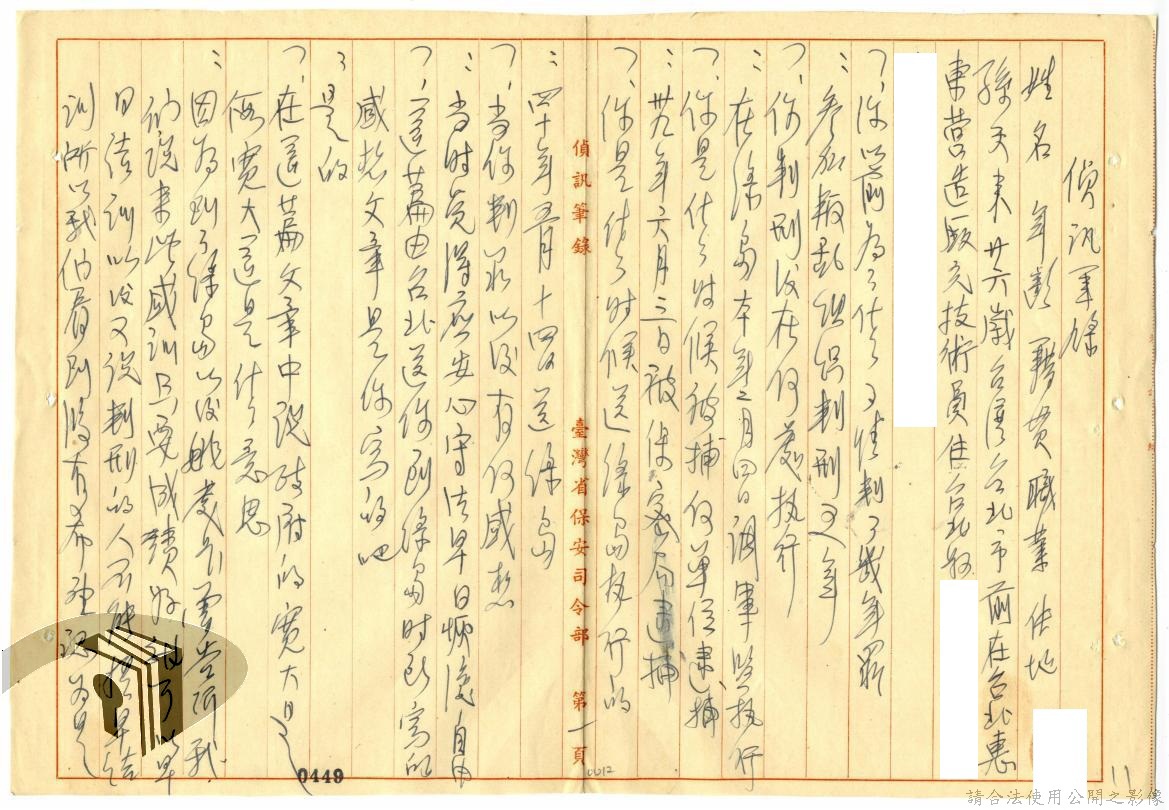 偵訊筆錄
姓名 年齡 籍貫 職業 住地
孫天來 廿六歲 台灣台北市 前在台北惠
東營造廠充技術員住台北縣
、你以前為了什么事情判了幾年罪
：參加叛亂組織判刑五年
、你判刑後在何處執行
：在綠島本年二月四日調軍監執行
、你是什么時候被捕何單位逮捕
：卅九年六月三日被保密局逮捕
、你是什么時候送綠島執行的
偵訊筆錄
臺灣省保安司令部
第一頁
：四十年五月十四日送綠島
、当你判罪以後有何感想
：当時覺得应安心守法早日恢復自由
、這篇由台北送你到綠島時所寫的
感想文章是你寫的吧
：是的
、在這篇文章中說政府的寬大是
侮寬大這是什么意思
：因為到了綠島以後 處長曾告訴我
们說来此感訓只要成績好 可以早
日結訓以後又說判刑的人不能提早結
訓所以我們 到 有希望 為是
0449
0012
11
請合法使用公開之影像